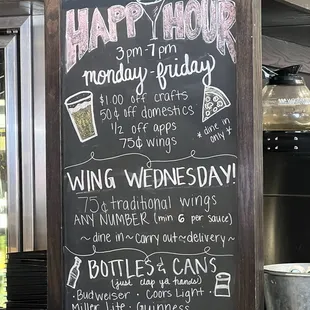 HAPPY HOUR
3pm-7pm
monday-friday
$1.00 off crafts
50¢ off domestics
1/2 off apps
75¢ wings
* dine in only *
WING WEDNESDAY!
75¢ traditional wings
ANY NUMBER (min 6 per sauce)
~ dine in ~ Carry out ~ delivery ~
BOTTLES & CANS
(just clap ya hands)
· Budweiser · Coors Light ·
Miller Lite · Guinness